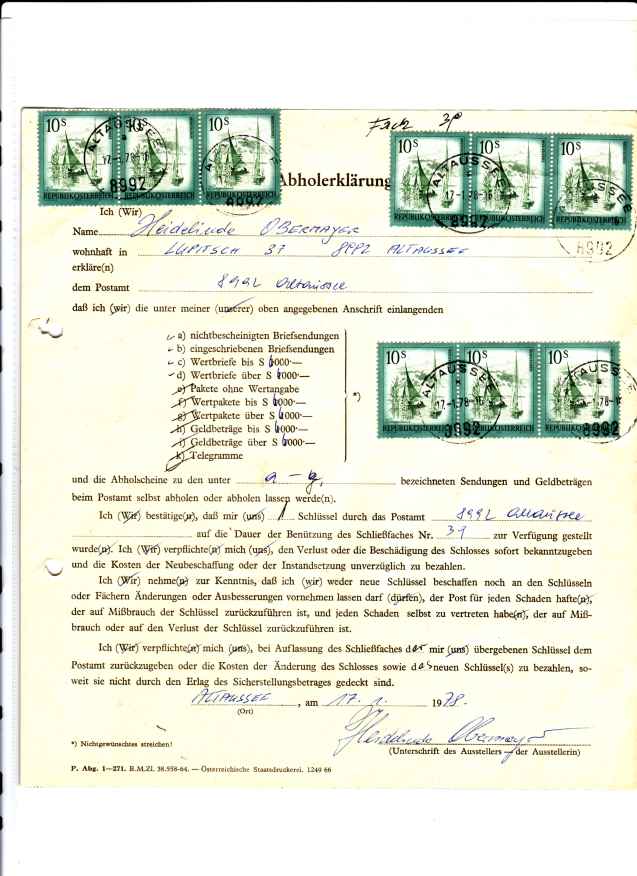 10 S 10 S 10 S
REPUBLIK ÖSTERREICH REPUBLIK ÖSTERREICH REPUBLIK ÖSTERREICH
ALTAUSSEE
17.-1.78-16
8992
8992
Fach 39
10 S 10 S 10 S
REPUBLIK ÖSTERREICH REPUBLIK ÖSTERREICH REPUBLIK ÖSTERREICH
ALTAUSSEE
17.-1.78-16
8992
8992
Abholerklärung
Ich (Wir)
Name Heidelinde OBERMAYER
wohnhaft in LUPITSCH 37 8992 ALTAUSSEE
erkläre(n)
dem Postamt 8992 Altaussee
daß ich (wir) die unter meiner (unserer) oben angegebenen Anschrift einlangenden
a) nichtbescheinigten Briefsendungen
b) eingeschriebenen Briefsendungen
c) Wertbriefe bis S 6000·—
d) Wertbriefe über S 6000·—
e) Pakete ohne Wertangabe
f) Wertpakete bis S 6000·—
g) Wertpakete über S 6000·—
h) Geldbeträge bis S 6000·—
i) Geldbeträge über S 6000·—
k) Telegramme
*)
10 S 10 S 10 S
REPUBLIK ÖSTERREICH REPUBLIK ÖSTERREICH REPUBLIK ÖSTERREICH
ALTAUSSEE
17.-1.78-16
8992
8992
und die Abholscheine zu den unter a - g, bezeichneten Sendungen und Geldbeträgen
beim Postamt selbst abholen oder abholen lassen werde(n).
Ich (Wir) bestätige(n), daß mir (uns) 1 Schlüssel durch das Postamt 8992 Altaussee
auf die Dauer der Benützung des Schließfaches Nr. 39 zur Verfügung gestellt
wurde(n). Ich (Wir) verpflichte(n) mich (uns), den Verlust oder die Beschädigung des Schlosses sofort bekanntzugeben
und die Kosten der Neubeschaffung oder der Instandsetzung unverzüglich zu bezahlen.
Ich (Wir) nehme(n) zur Kenntnis, daß ich (wir) weder neue Schlüssel beschaffen noch an den Schlüsseln
oder Fächern Änderungen oder Ausbesserungen vornehmen lassen darf (dürfen), der Post für jeden Schaden hafte(n),
der auf Mißbrauch der Schlüssel zurückzuführen ist, und jeden Schaden selbst zu vertreten habe(n), der auf Miß-
brauch oder auf den Verlust der Schlüssel zurückzuführen ist.
Ich (Wir) verpflichte(n) mich (uns), bei Auflassung des Schließfaches den mir (uns) übergebenen Schlüssel dem
Postamt zurückzugeben oder die Kosten der Änderung des Schlosses sowie des neuen Schlüssel(s) zu bezahlen, so-
weit sie nicht durch den Erlag des Sicherstellungsbetrages gedeckt sind.
ALTAUSSEE, am 17. 1. 1978.
(Ort)
Heidelinde Obermayer
*) Nichtgewünschtes streichen!
(Unterschrift des Ausstellers – der Ausstellerin)
P. Abg. 1—271. B.M.Zl. 38.558-64. — Österreichische Staatsdruckerei. 1249 66